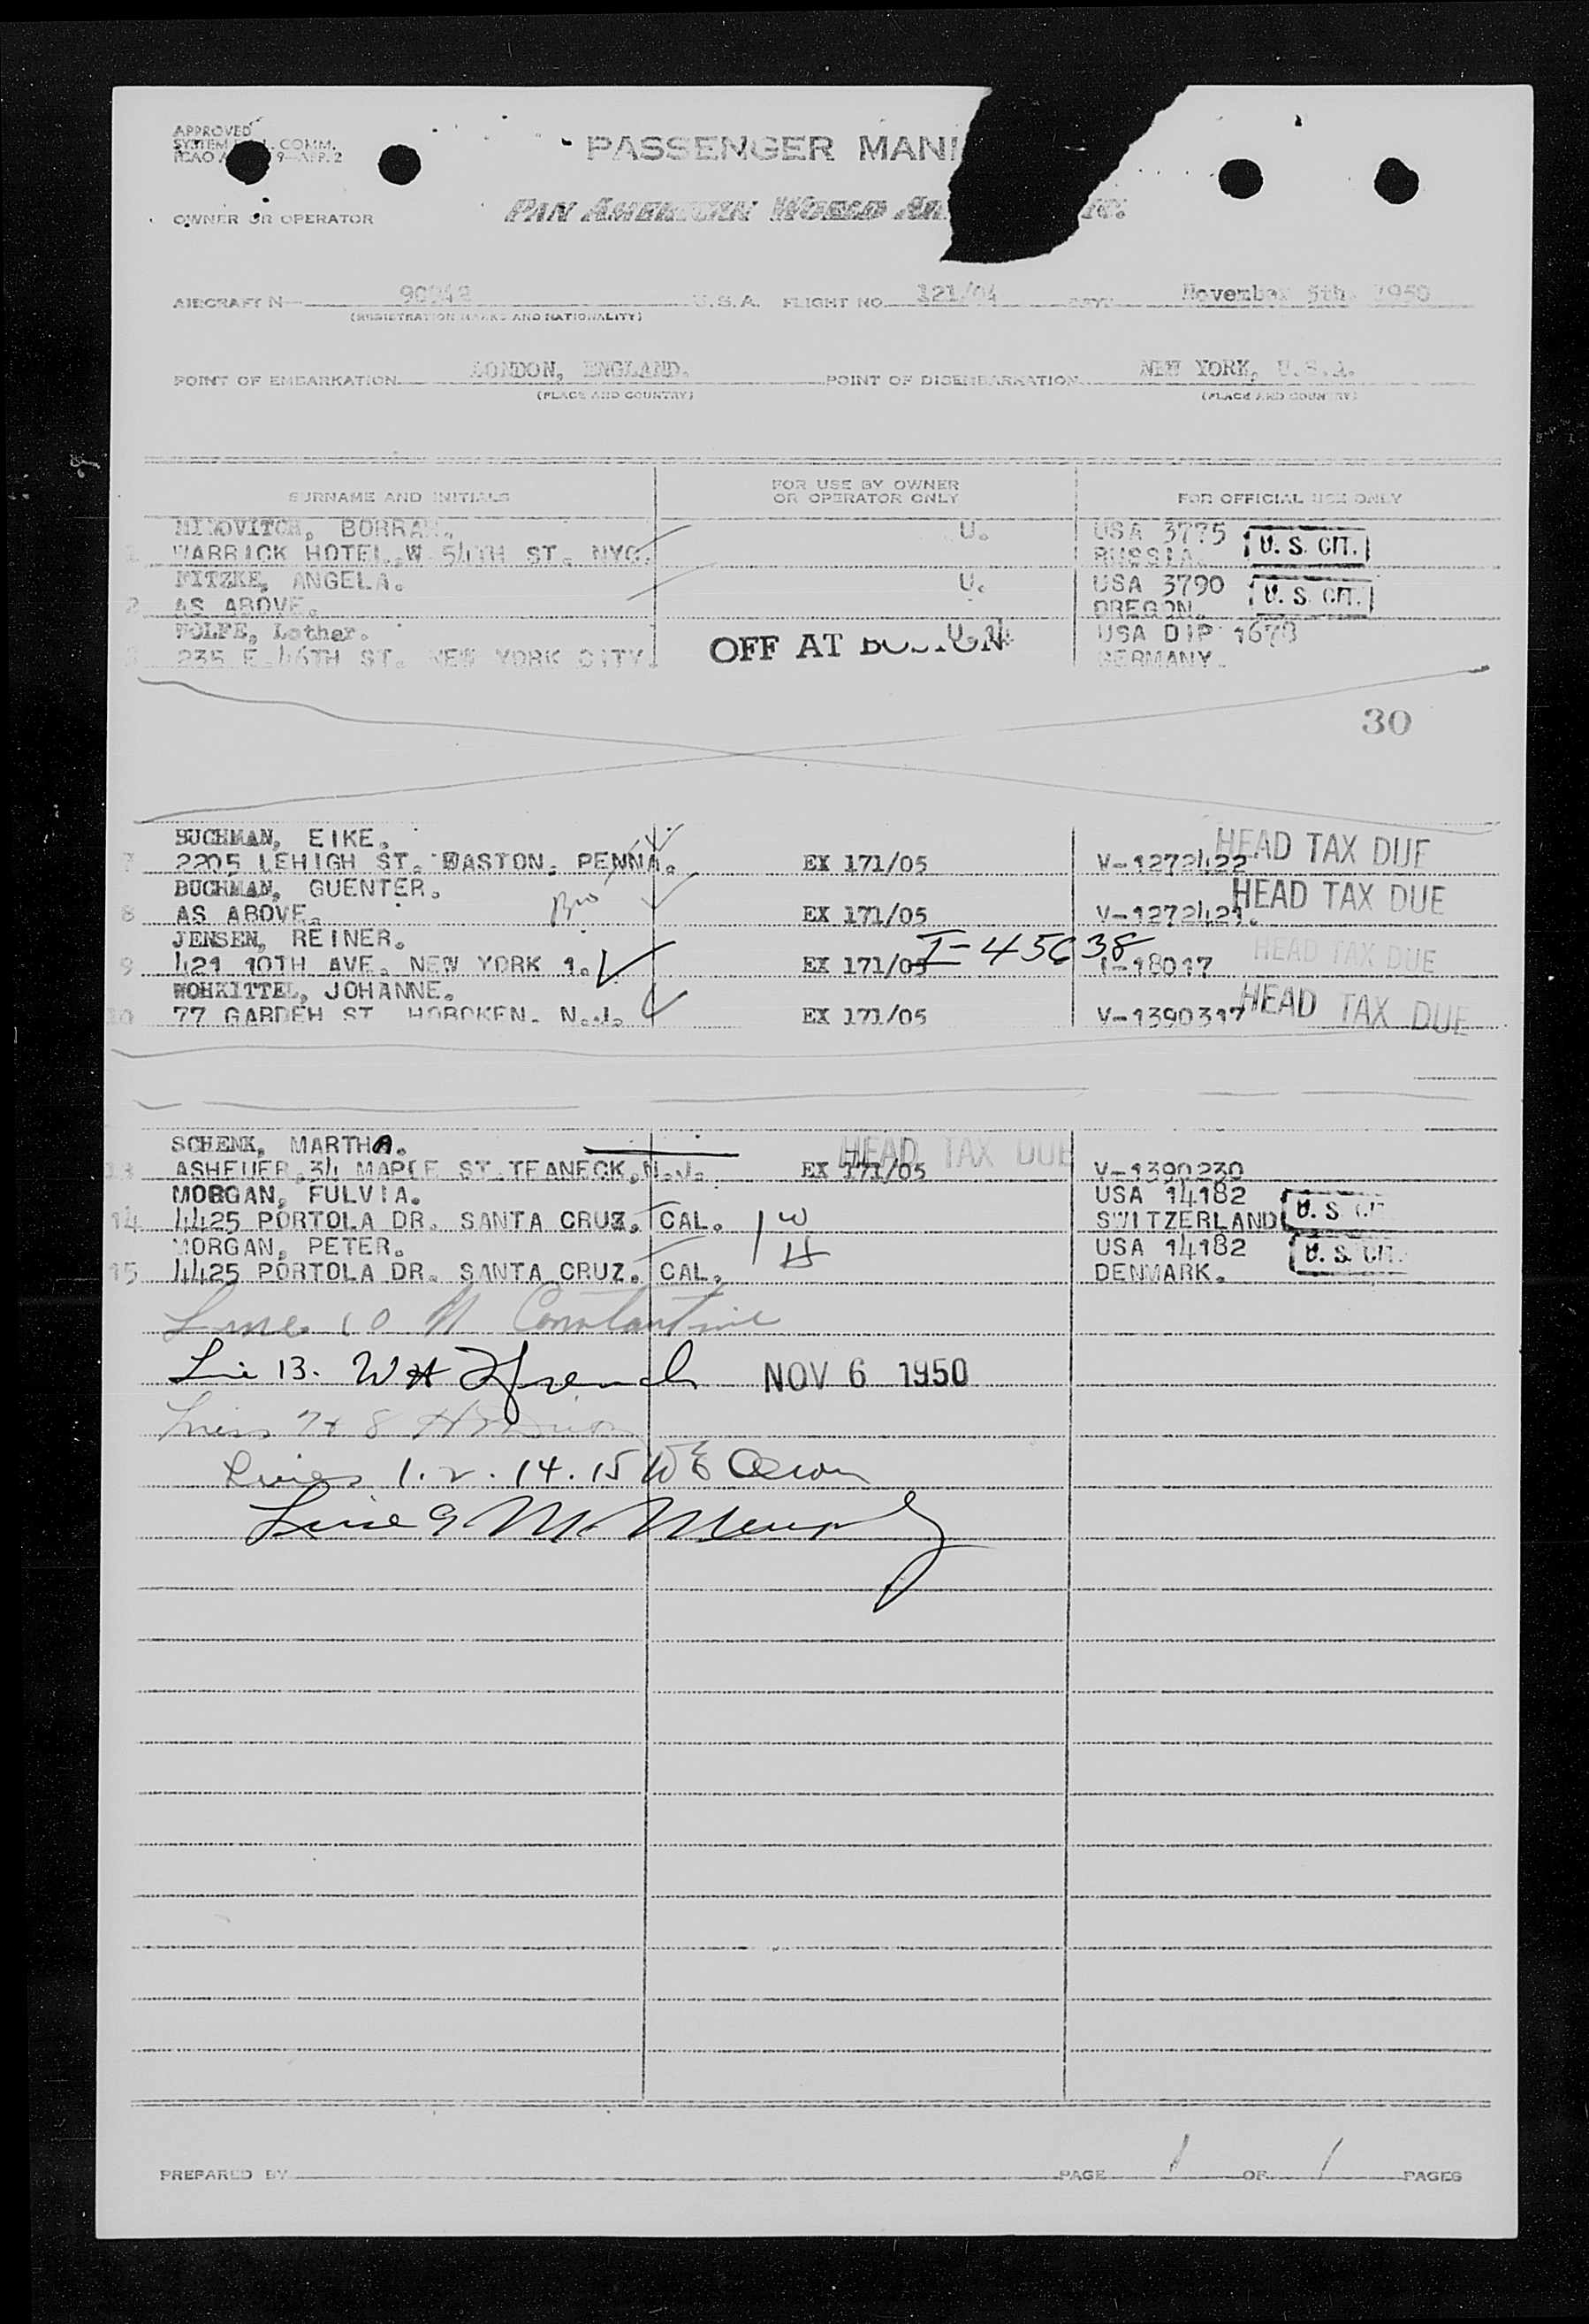 APPROVED
COMM.
9-APP. 2
PASSENGER MANI
OWNER OR OPERATOR
PAN AMERICAN WORLD
AIRCRAFT N U.S.A. FLIGHT NO. 121/04 November 5th. 1950
(REGISTRATION MARKS AND NATIONALITY)
POINT OF EMBARKATION LONDON, ENGLAND. POINT OF DISEMBARKATION NEW YORK, U.S.A.
(PLACE AND COUNTRY) (PLACE AND COUNTRY)
SURNAME AND INITIALS FOR USE BY OWNER OR OPERATOR ONLY FOR OFFICIAL USE ONLY
U. USA 3775
1 WARRICK HOTEL. W 54TH ST. NYC. RUSSIA. U. S. CIT.
NITZKE, ANGELA. U. USA 3790
2 AS ABOVE. OREGON. U. S. CIT.
WOLFE, Lothar. USA DIP 1678
3 235 E. 46TH ST. NEW YORK CITY. OFF AT BOSTON GERMANY.
30
BUCHMAN, EIKE. HEAD TAX DUE
7 2205 LEHIGH ST. EASTON. PENNA. EX 171/05 V-1272422
BUCHMAN, GUENTER. HEAD TAX DUE
8 AS ABOVE. EX 171/05 V-1272421.
JENSEN, REINER. I-45638 HEAD TAX DUE
9 421 10TH AVE. NEW YORK 1. EX 171/05 18017
WOHKITTEL, JOHANNE. HEAD TAX DUE
10 77 GARDEH ST HOBOKEN. N.J. EX 171/05 V-1390317
SCHENK, MARTHA. HEAD TAX DUE
13 ASHEUER, 34 MAPLE ST. TEANECK, N.J. EX 171/05 V-1390230
MORGAN, FULVIA. USA 14182
14 4425 PORTOLA DR. SANTA CRUZ. CAL. W SWITZERLAND U. S.
MORGAN, PETER. H USA 14182
15 4425 PORTOLA DR. SANTA CRUZ. CAL. DENMARK. U. S. CIT.
Line 10 Constantine
Line 13. WH French NOV 6 1950
Lines 7 + 8
Lines 1. 2. 14. 15
Line 9 M. Murphy
PREPARED BY PAGE 1 OF 1 PAGES